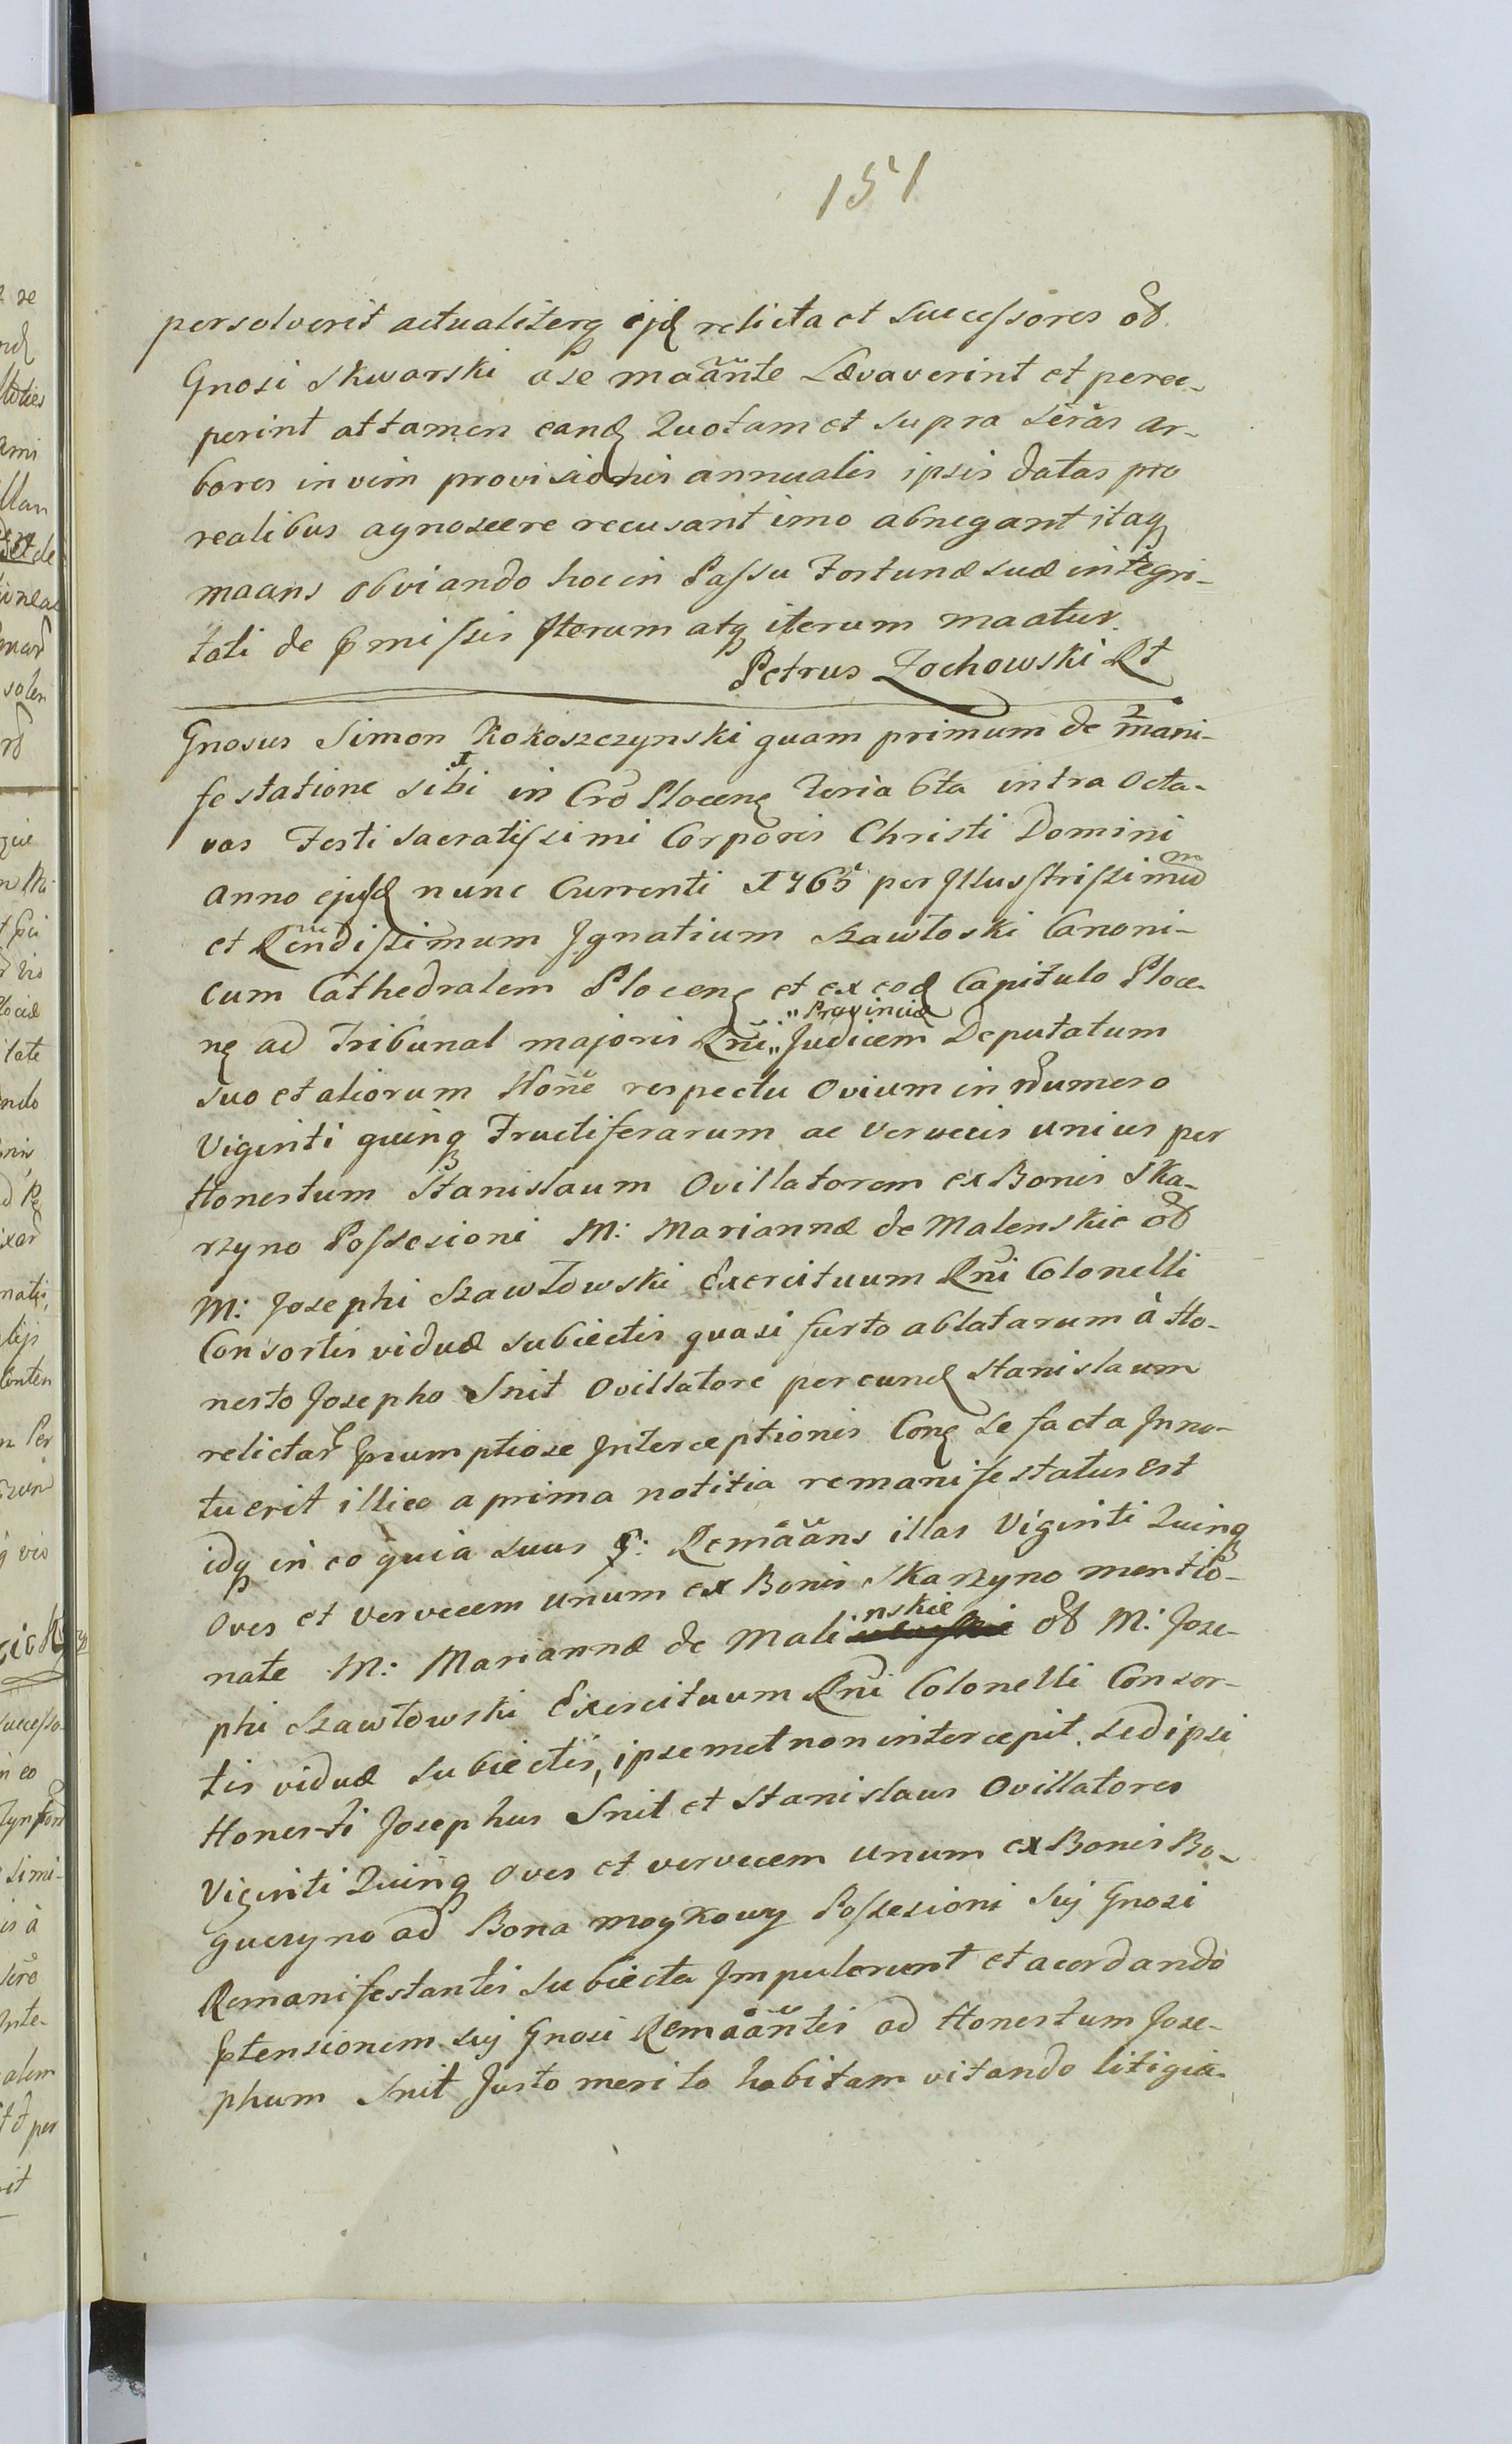 151
persolverit actualiterq ejd relicta et Successores od
Gnosi Skwarski a se maãnte Lævaverint et perce-
perint attamen eand Quotam et supra seras ar-
bores in vim provisionis annualis ipsis datas pro
realibus agnoscere recusant imo abnegant itaq
maans obviando hoc in Passu Fortunæ suæ integri-
tati de pmissis Iterum atq iterum maatur
Petrus Zochowski Rt
Gnosus Simon Kokoszczynski quam primum de mani-
festatione sibi in Cro Plocen feria 6ta intra Octa-
vas Festi Sacratissimi Corporis Christi Domini
Anno ejusd nunc Currenti 1765 per Illustrissimum
et Rendissimum Ignatium Szawłoski Canoni-
cum Cathedralem Plocen et ex eod Capitulo Ploce-
n ad Tribunal majoris Rni „Provinciæ„ Judicem Deputatum
suo et aliorum Hone respectu Ovium in Numero
Viginti quinq Fructiferarum ac Vervecis unius per
Honestum Stanislaum Ovillatorem ex Bonis Ska-
rzyno Possesioni M: Mariannæ de Malenskie od
M: Josephi Szawłowski Exercituum Rni Colonelli
Consortis viduæ subiectis quasi furto ablatarum à Ho-
nesto Josepho Snit Ovillatore per eund Stanislaum
relictar prumptiose Interceptionis Con se facta Inno-
tuerit illico a prima notitia remanifestatus est
idq in eo quia suus G: Remaans illas Viginti Quinq
Oves et Vervecem unum ex Bonis Skarzyno mentio-
nate M: Mariannæ de Malinskie od M: Jose-
phi Szawłowski Exercituum Rni Colonelli Consor-
tis viduæ subiectis, ipsemet non intercepit, sed ipsi
Honesti Josephus Snit et Stanislaus Ovillatores
Viginti Quinq Oves et vervecem unum ex Bonis Bo-
guszyno ad Bona Moykowy Possesioni Suj Gnosi
Remanifestantis subiecta Impulerunt et acordando
ptensionem suj Gnosi Remaantis ad Honestum Jose-
phum Snit Justo merito habitam vitando litigia